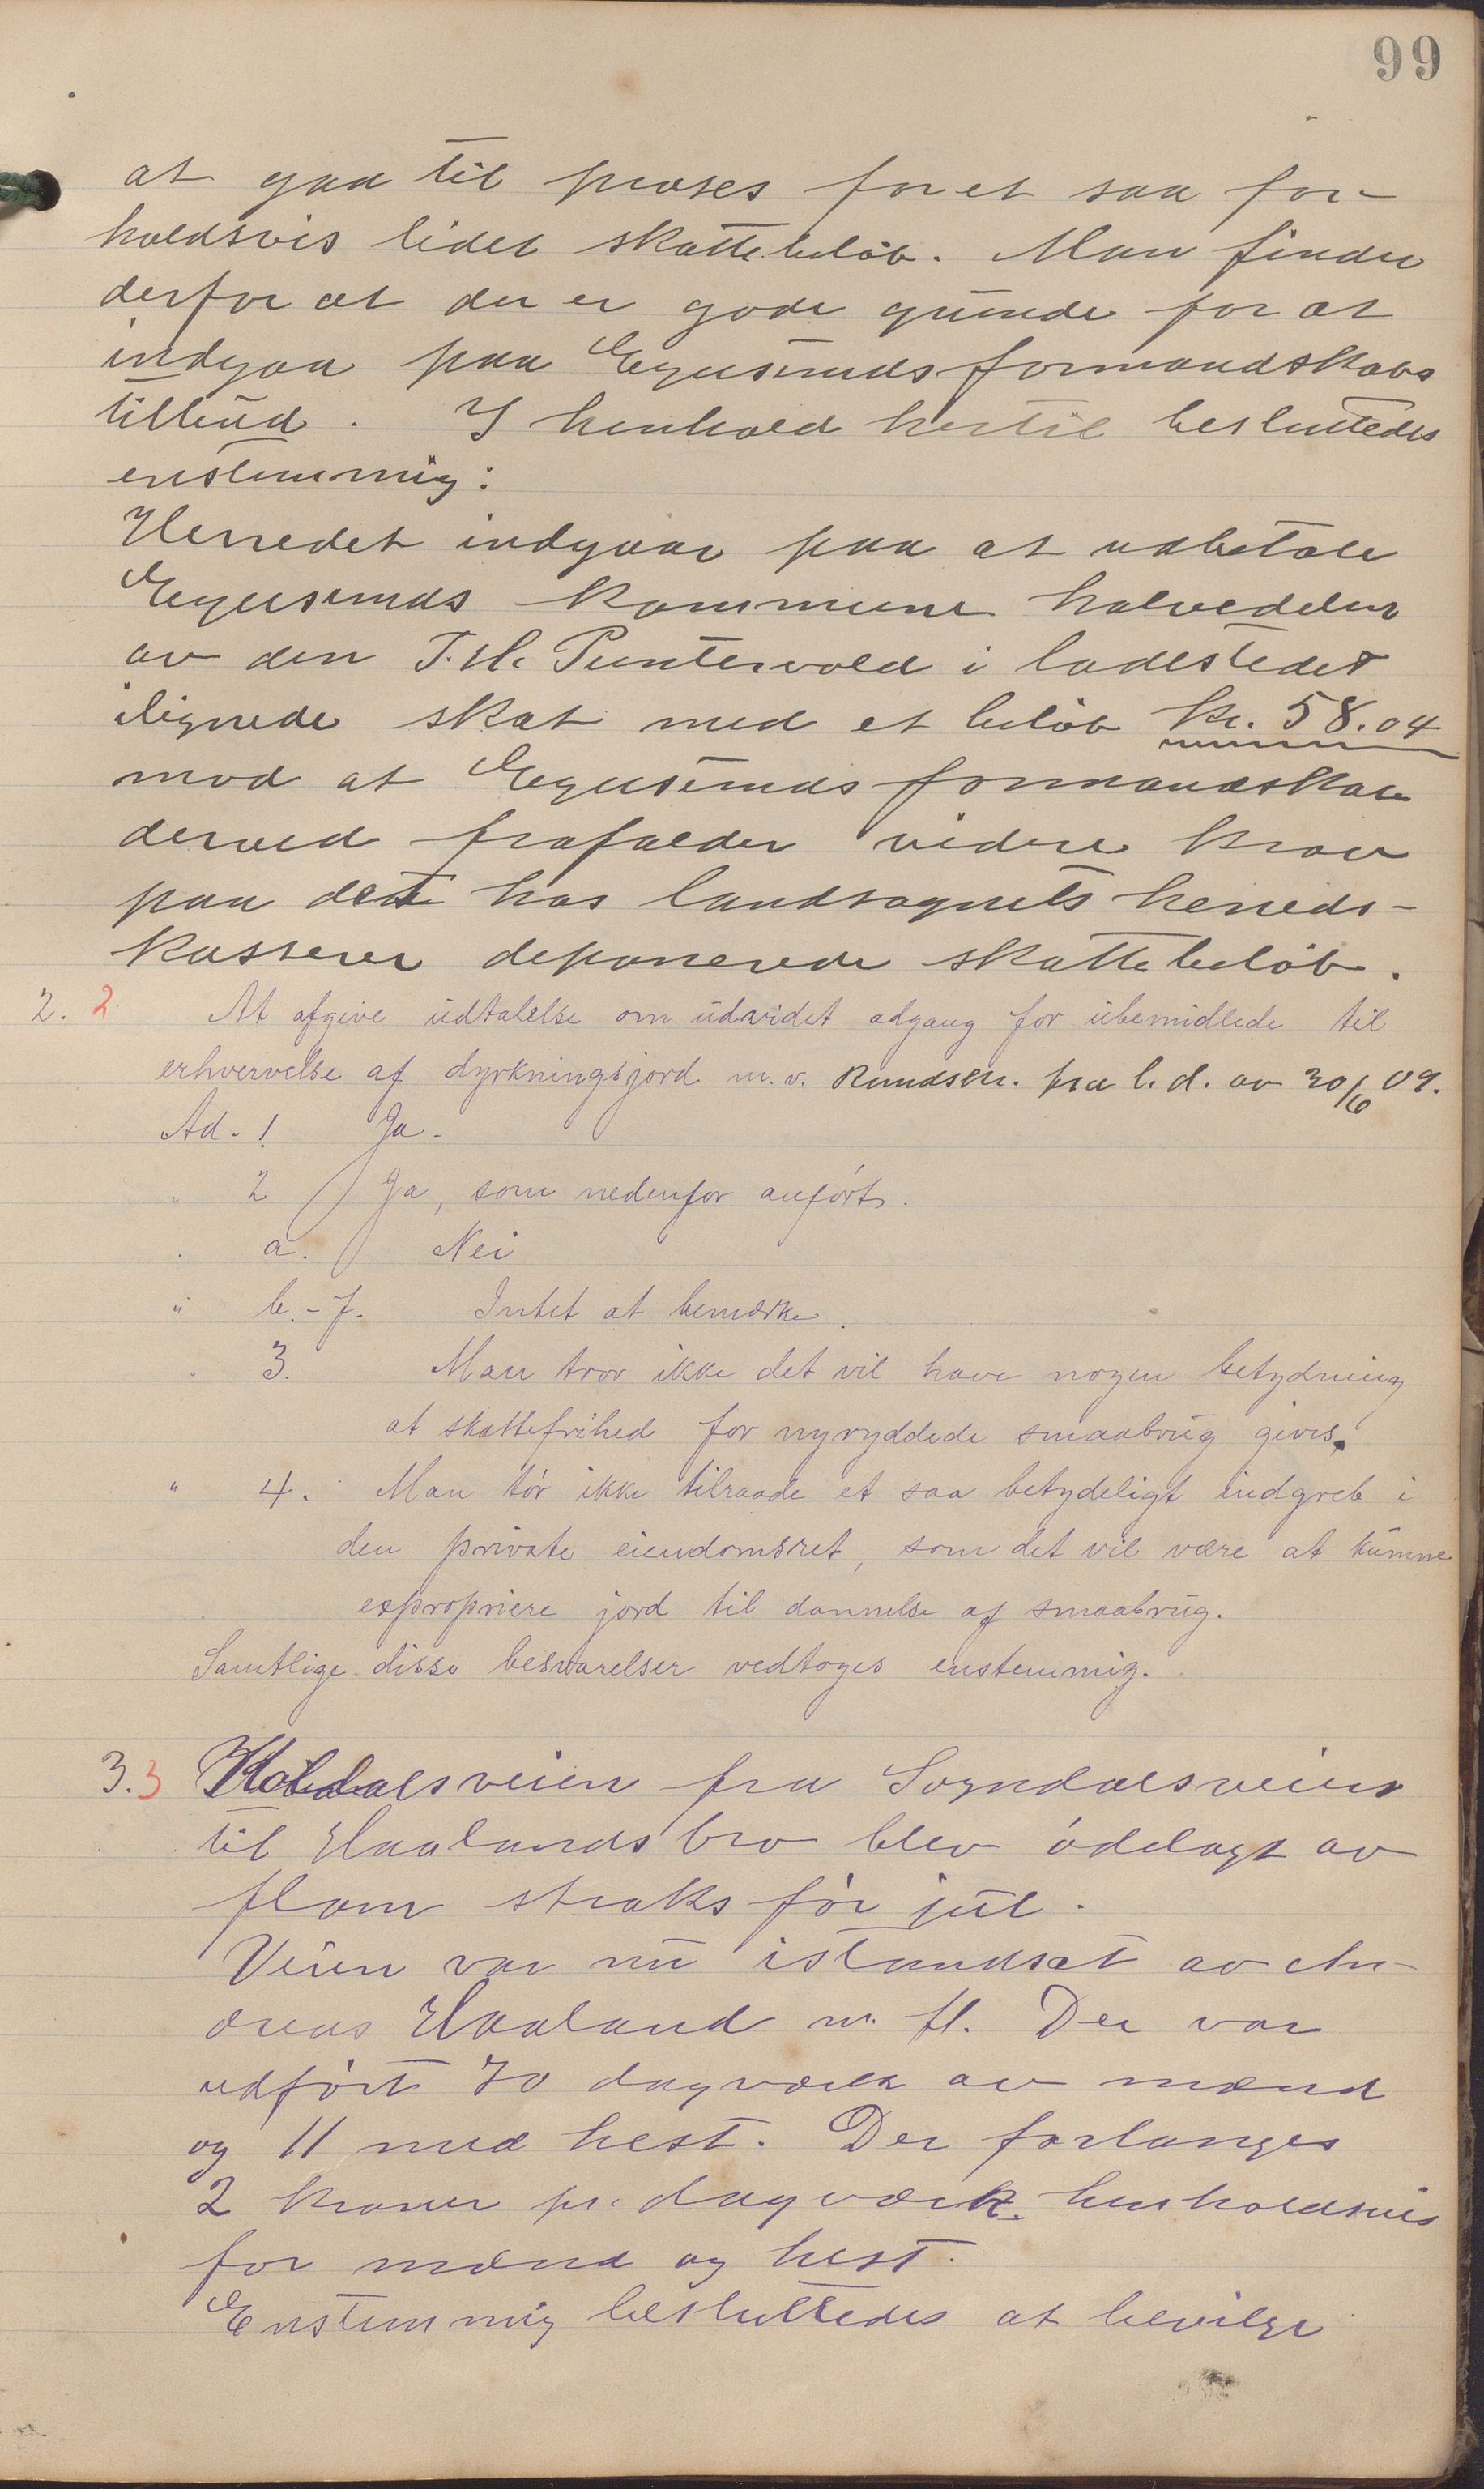 99
at gaa til proses for et saa for-
holdsvis lidet skattebeløb. Man finder
derfor at der er gode grunde for at
indgaa paa Egersunds formandskabs
tilbud. I henhold hertil besluttedes
enstemmig:
Herredet indgaar paa at udbetale
Egersunds kommune halvedelen
av den T. H. Puntervold i ladestedet
ilignede skat med et beløb kr. 58.04
mod at Egersunds formandskab
derved frafalder videre krav
paa det hos landsognets herreds-
kasserer deponerede skattebeløb.
2. 2 At afgive udtalelse om udvidet adgang for ubemidlede til
erhvervelse af dyrkningsjord m.v. Rundskr. fra l. d. av 30/6 09.
Ad. 1 Ja.
" 2 Ja, som nedenfor anført.
" a. Nei
" b.-f. Intet at bemærke.
" 3. Man tror ikke det vil have nogen betydning
at skattefrihed for nyryddede smaabrug gives.
" 4. Man tør ikke tilraade et saa betydeligt indgreb i
den private eiendomsret, som det vil være at kunne
expropriere jord til dannelse af smaabrug.
Samtlige disse besvarelser vedtoges enstemmig.
3. 3 Koldalsveien fra Sogndalsveien
til Haalands bro blev ødelagt av
flom straks før jul.
Veien var nu istandsat av An-
dreas Haaland m. fl. Der var
udført 70 dagværk av mænd
og 11 med hest. Der forlanges
2 kroner pr. dagværk henholdsvis
for mænd og hest.
Enstemmig besluttedes at bevilge